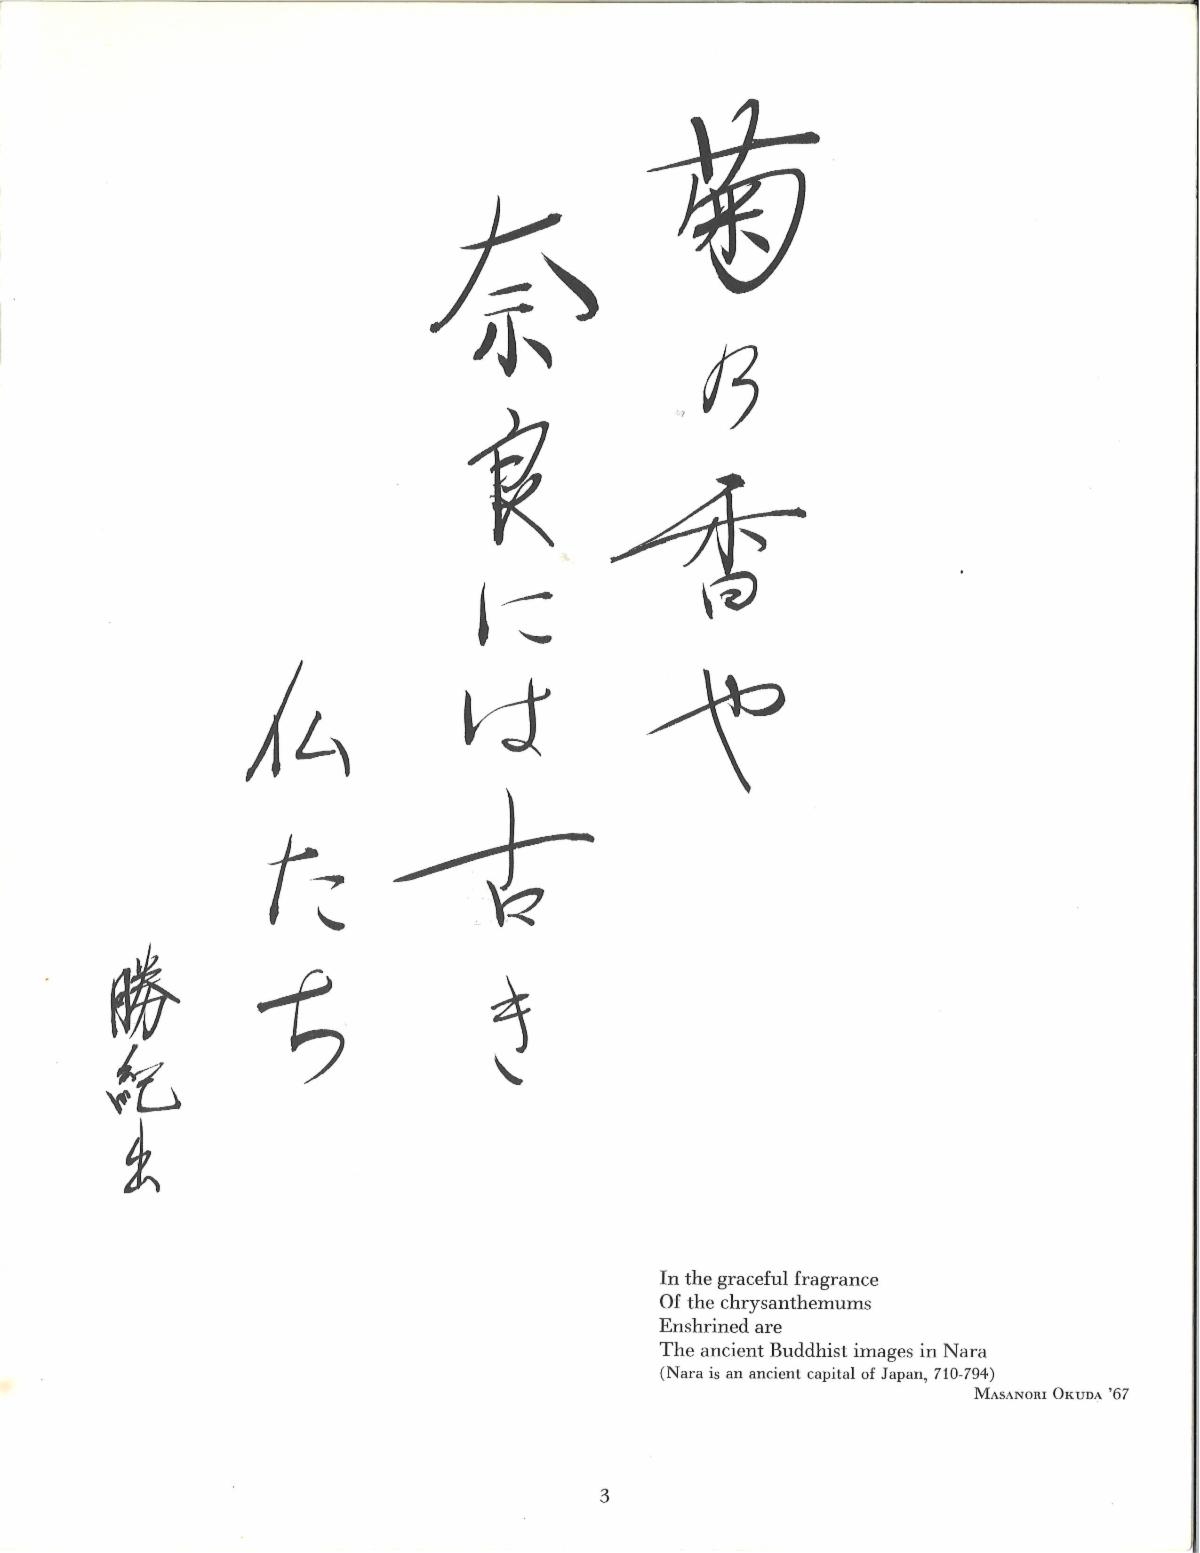 菊乃香や
奈良には古き
仏たち
勝紀出
In the graceful fragrance
Of the chrysanthemums
Enshrined are
The ancient Buddhist images in Nara
(Nara is an ancient capital of Japan, 710-794)
MASANORI OKUDA '67
3